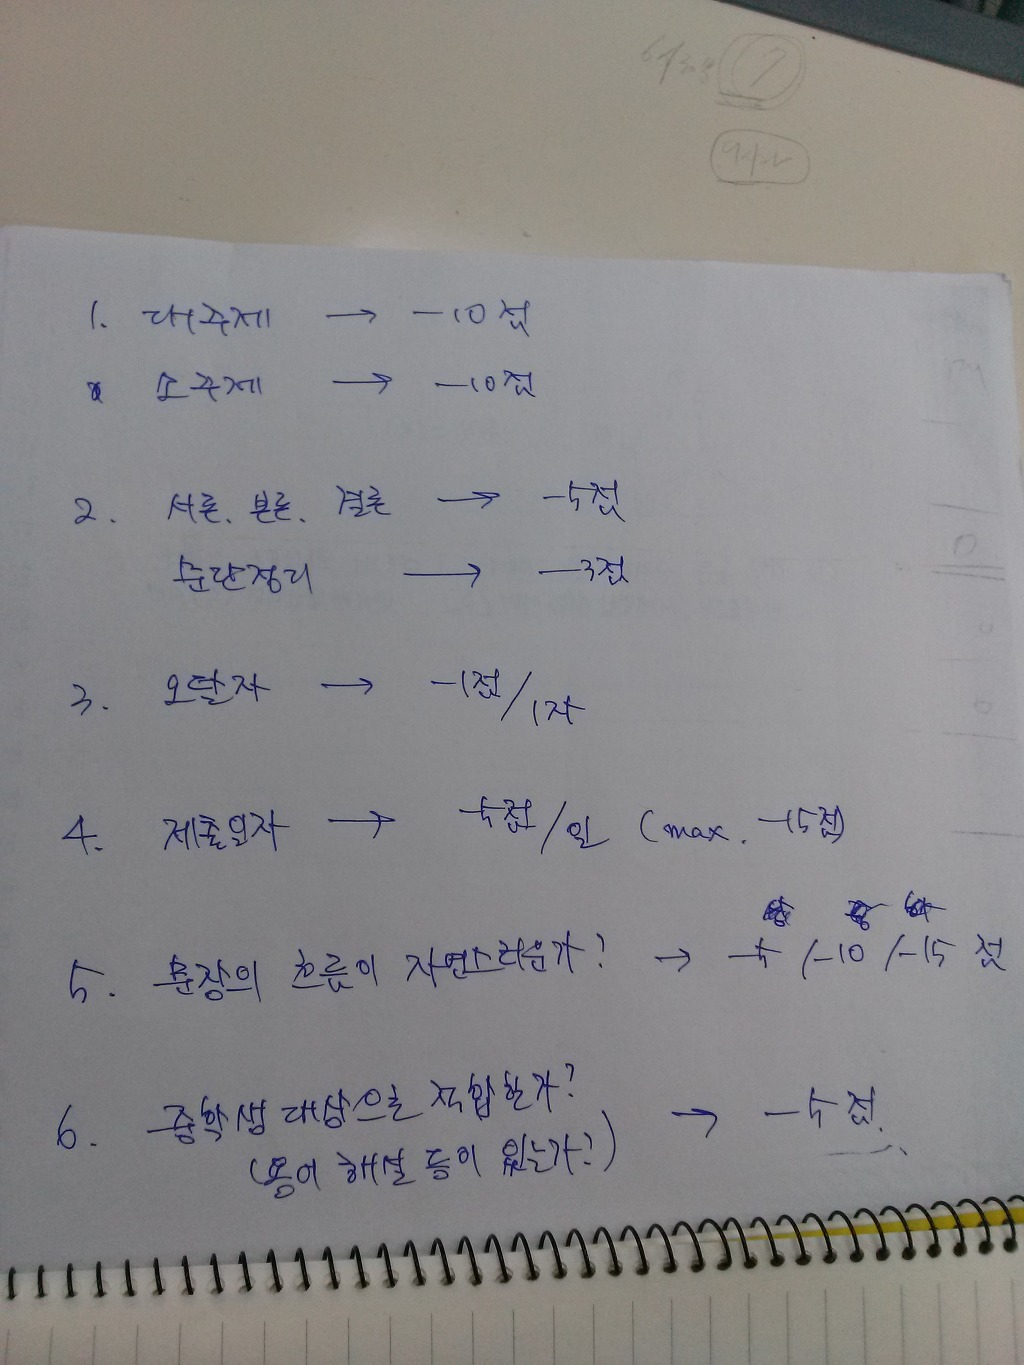 1. 대주제 → -10점
소주제 → -10점
2. 서론. 본론. 결론 → -5점
문단정리 → -3점
3. 오탈자 → -1점/1자
4. 제출일자 → -5점/일 (max. -15점)
5. 문장의 흐름이 자연스러운가? → -5/-10/-15 점
6. 중학생 대상으로 적합한가? → -5점.
(용어 해설 등이 있는가?)